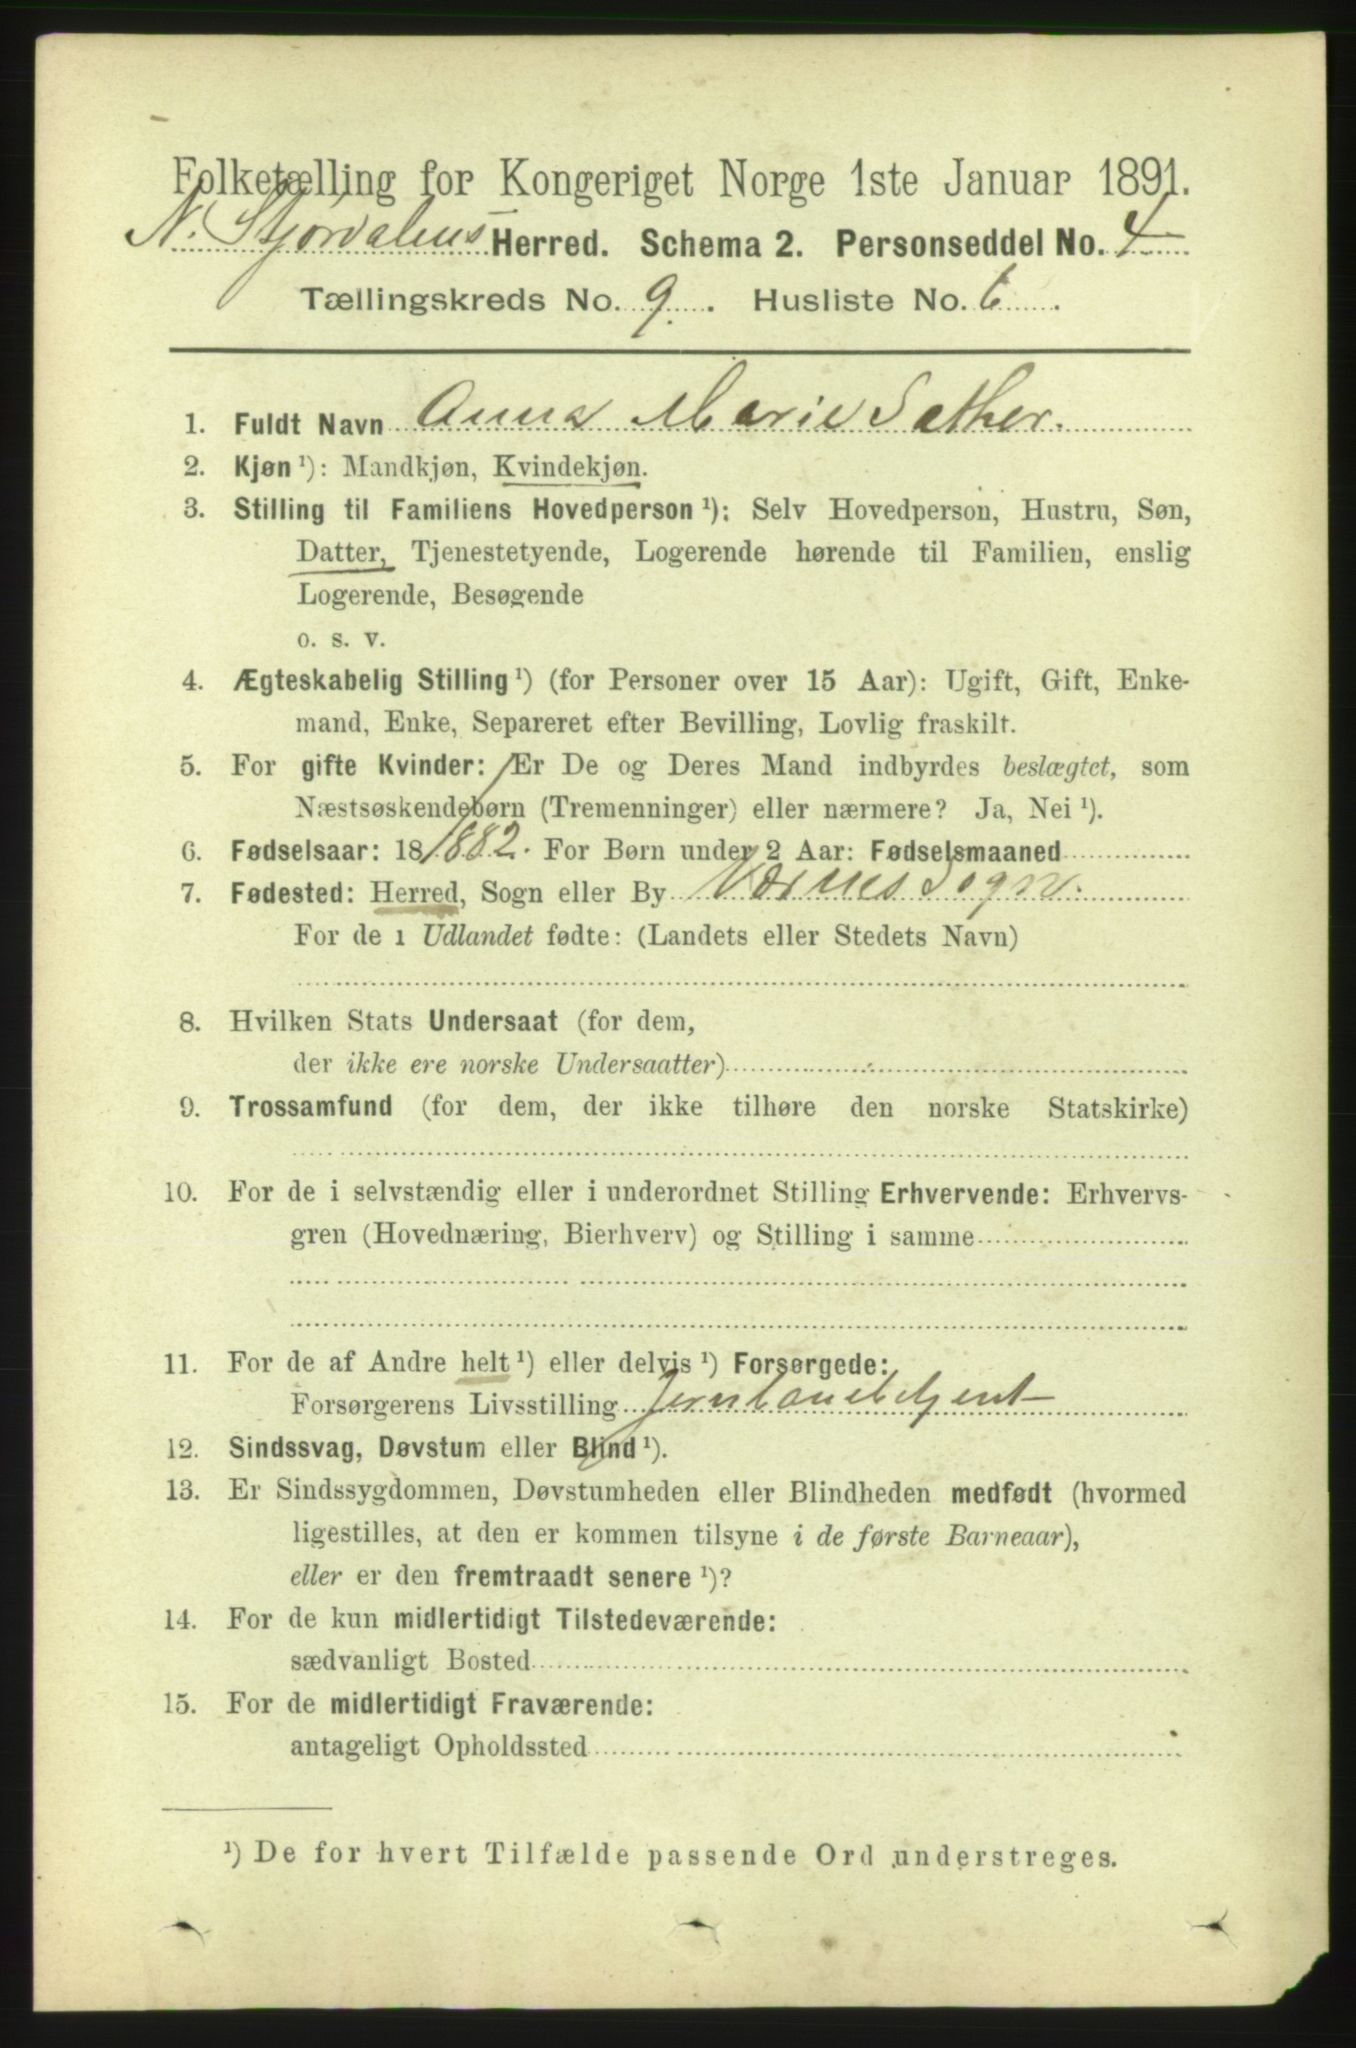 Folketælling for Kongeriget Norge 1ste Januar 1891.
N. Stjørdalens Herred. Schema 2. Personseddel No. 4
Tællingskreds No. 9. Husliste No. 6.
1. Fuldt Navn Anna Marie Sæther.
2. Kjøn ¹): Mandkjøn, Kvindekjøn.
3. Stilling til Familiens Hovedperson ¹): Selv Hovedperson, Hustru, Søn,
Datter, Tjenestetyende, Logerende hørende til Familien, enslig
Logerende, Besøgende
o. s. v.
4. Ægteskabelig Stilling ¹) (for Personer over 15 Aar): Ugift, Gift, Enke-
mand, Enke, Separeret efter Bevilling, Lovlig fraskilt.
5. For gifte Kvinder: Er De og Deres Mand indbyrdes beslægtet, som
Næstsøskendebørn (Tremenninger) eller nærmere? Ja, Nei ¹).
6. Fødselsaar: 18 1882. For Børn under 2 Aar: Fødselsmaaned
7. Fødested: Herred, Sogn eller By Værnes Sogn.
For de i Udlandet fødte: (Landets eller Stedets Navn)
8. Hvilken Stats Undersaat (for dem,
der ikke ere norske Undersaatter)
9. Trossamfund (for dem, der ikke tilhøre den norske Statskirke)
10. For de i selvstændig eller i underordnet Stilling Erhvervende: Erhvervs-
gren (Hovednæring, Bierhverv) og Stilling i samme
11. For de af Andre helt ¹) eller delvis ¹) Forsørgede:
Forsørgerens Livsstilling
12. Sindssvag, Døvstum eller Blind ¹).
13. Er Sindssygdommen, Døvstumheden eller Blindheden medfødt (hvormed
ligestilles, at den er kommen tilsyne i de første Barneaar),
eller er den fremtraadt senere ¹)?
14. For de kun midlertidigt Tilstedeværende:
sædvanligt Bosted
15. For de midlertidigt Fraværende:
antageligt Opholdssted
¹) De for hvert Tilfælde passende Ord understreges.